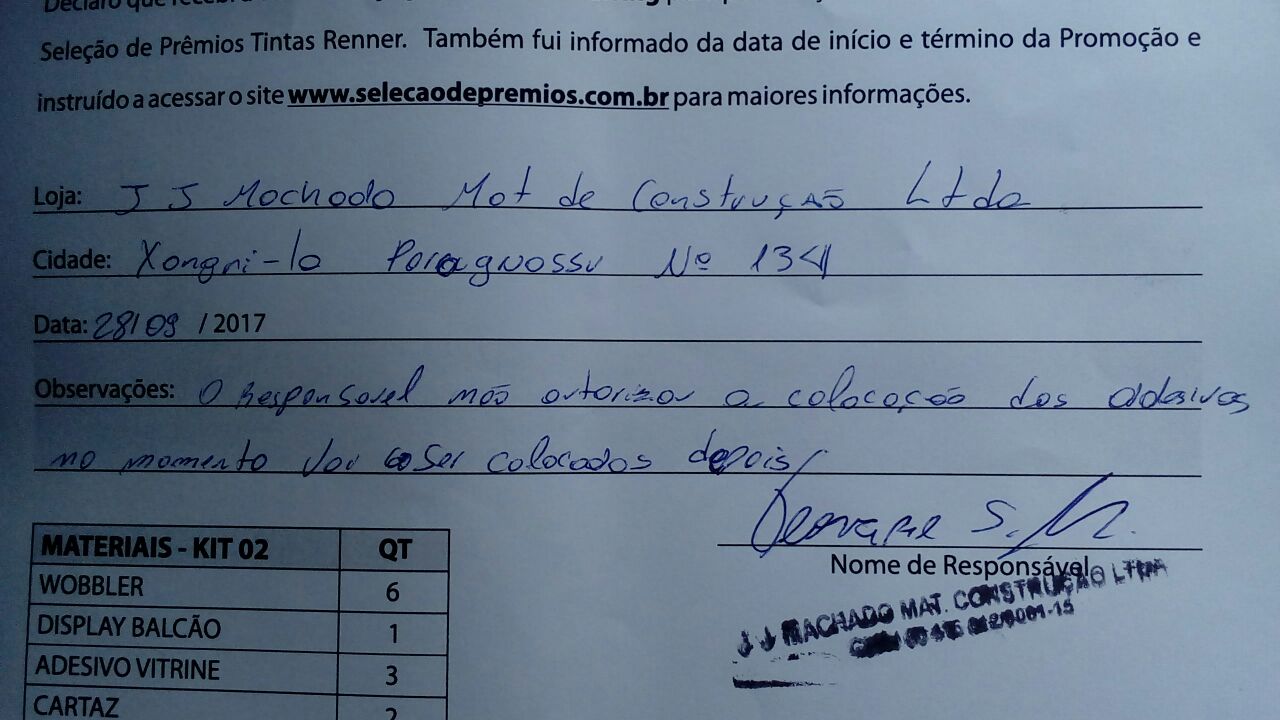 Declaro que
Seleção de Prêmios Tintas Renner. Também fui informado da data de início e término da Promoção e
instruído a acessar o site www.selecaodepremios.com.br para maiores informações.
Loja: J J Machado Mat de Construção Ltda
Cidade: Xangri-lo Paraguassu Nº 134
Data: 28/09 / 2017
Observações: O Responsavel não autorizou a colocação dos adesivos
no momento vai ser colocados depois
S.
Nome de Responsável
J J MACHADO MAT. CONSTRUÇÃO LTDA
MATERIAIS - KIT 02 QT
WOBBLER 6
DISPLAY BALCÃO 1
ADESIVO VITRINE 3
CARTAZ 2